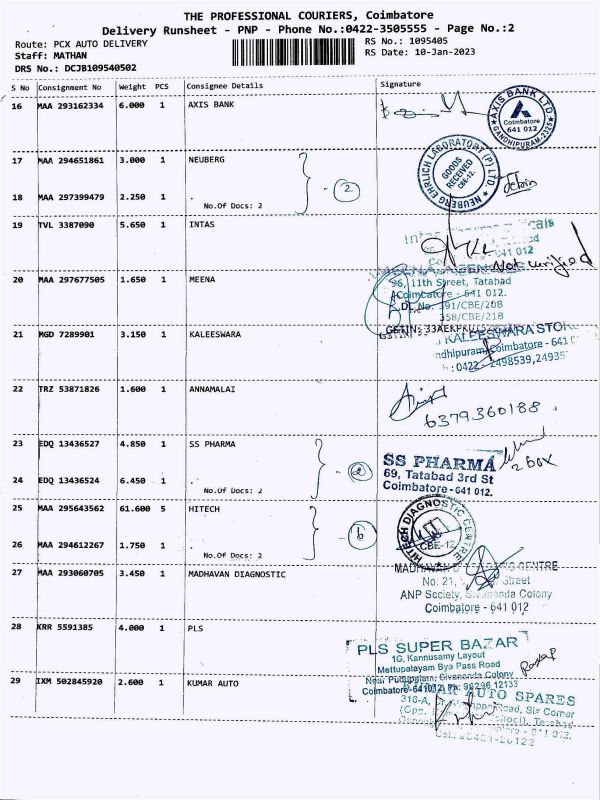 THE PROFESSIONAL COURIERS, Coimbatore
Delivery Runsheet - PNP - Phone No.:0422-3505555 - Page No.:2
Route: PCX AUTO DELIVERY
Staff: MATHAN
DRS No.: DCJB109540502
RS No.: 1095405
RS Date: 10-Jan-2023
S No Consignment No Weight PCS Consignee Details Signature
16 MAA 293162334 6.000 1 AXIS BANK
AXIS BANK LTD
Coimbatore
641 012
GANDHIPURAM
17 MAA 294651861 3.000 1 NEUBERG
NEUBERG EHRLICH LABORATORY (P) LTD.
GOODS
RECEIVED
CBE-12.
2
18 MAA 297399479 2.250 1 .
No.Of Docs: 2
19 TVL 3387090 5.650 1 INTAS
641 012
Not verified
20 MAA 297677505 1.650 1 MEENA
96, 11th Street, Tatabad
Coimbatore - 641 012.
D.L. No. 391/CBE/20B
358/CBE/21B
21 MGD 7289901 3.150 1 KALEESWARA
KALEESWARA STO
ndhipuram, Coimbatore - 641
: 0422 - 2498539, 24935
22 TRZ 53871826 1.600 1 ANNAMALAI
6379360188
23 EDQ 13436527 4.850 1 SS PHARMA
SS PHARMA
69, Tatabad 3rd St
Coimbatore - 641 012.
2 box
24 EDQ 13436524 6.450 1 .
No.Of Docs: 2
25 MAA 295643562 61.600 5 HITECH
HITECH DIAGNOSTIC CENTRE
CBE-12
26 MAA 294612267 1.750 1 .
No.Of Docs: 2
27 MAA 293060705 3.450 1 MADHAVAN DIAGNOSTIC
MADHAVAN CENTRE
No: 21, Street
ANP Society, Sivananda Colony
Coimbatore - 641 012
28 KRR 5591385 4.000 1 PLS
PLS SUPER BAZAR
1G, Kannusamy Layout
Mettupalayam Bye Pass Road
Near Pudupalam, Sivananda Colony
Coimbatore-641012. Ph: 96296 12133
29 IXM 502845920 2.600 1 KUMAR AUTO
KUMAR AUTO SPARES
318-A, Road, Six Corner